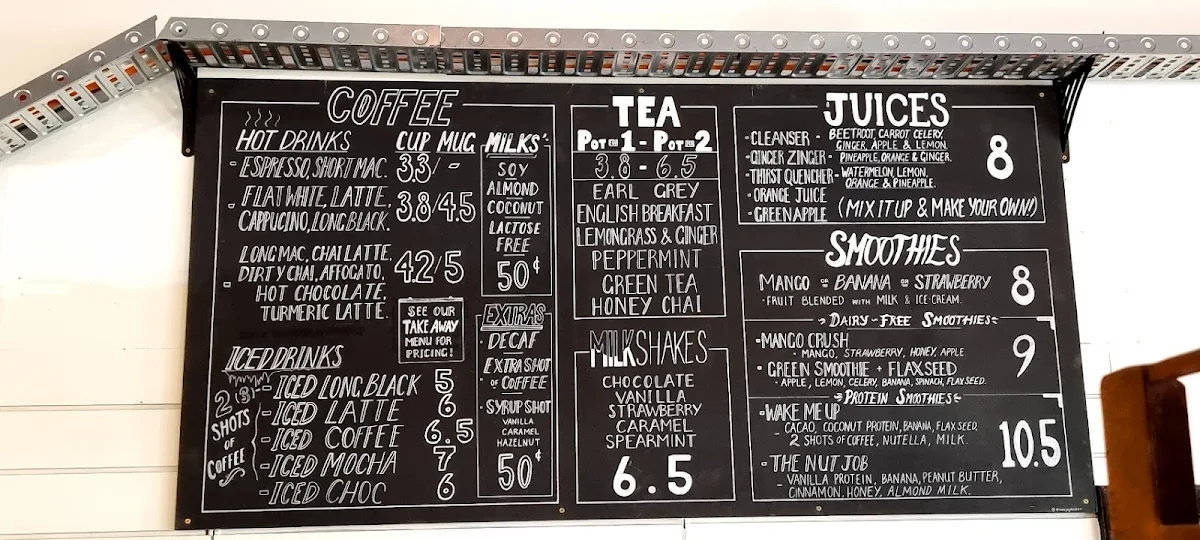 COFFEE
HOT DRINKS CUP MUG
- ESPRESSO, SHORT MAC. 3.3/ -
- FLAT WHITE, LATTE,
CAPPUCINO, LONG BLACK. 3.8/4.5
- LONG MAC, CHAI LATTE,
DIRTY CHAI, AFFOGATO,
HOT CHOCOLATE,
TURMERIC LATTE. 4.2/5
SEE OUR
TAKE AWAY
MENU FOR
PRICING!
ICED DRINKS
2 (3)
SHOTS
OF
COFFEE
- ICED LONG BLACK 5
- ICED LATTE 6
- ICED COFFEE 6.5
- ICED MOCHA 7
- ICED CHOC 6
MILKS
SOY
ALMOND
COCONUT
LACTOSE
FREE
50¢
EXTRAS
- DECAF
- EXTRA SHOT
OF COFFEE
- SYRUP SHOT
VANILLA
CARAMEL
HAZELNUT
50¢
TEA
POT FOR 1 - POT FOR 2
3.8 - 6.5
EARL GREY
ENGLISH BREAKFAST
LEMONGRASS & GINGER
PEPPERMINT
GREEN TEA
HONEY CHAI
MILKSHAKES
CHOCOLATE
VANILLA
STRAWBERRY
CARAMEL
SPEARMINT
6.5
JUICES
- CLEANSER - BEETROOT, CARROT, CELERY,
GINGER, APPLE & LEMON.
- GINGER ZINGER - PINEAPPLE, ORANGE & GINGER.
- THIRST QUENCHER - WATERMELON, LEMON,
ORANGE & PINEAPPLE.
- ORANGE JUICE
- GREEN APPLE
8
(MIX IT UP & MAKE YOUR OWN!)
SMOOTHIES
MANGO OR BANANA OR STRAWBERRY
- FRUIT BLENDED WITH MILK & ICE-CREAM.
8
DAIRY-FREE SMOOTHIES
- MANGO CRUSH
- MANGO, STRAWBERRY, HONEY, APPLE
- GREEN SMOOTHIE + FLAXSEED
- APPLE, LEMON, CELERY, BANANA, SPINACH, FLAXSEED.
9
PROTEIN SMOOTHIES
- WAKE ME UP
CACAO, COCONUT PROTEIN, BANANA, FLAXSEED,
2 SHOTS OF COFFEE, NUTELLA, MILK.
- THE NUT JOB
- VANILLA PROTEIN, BANANA, PEANUT BUTTER,
CINNAMON, HONEY, ALMOND MILK.
10.5